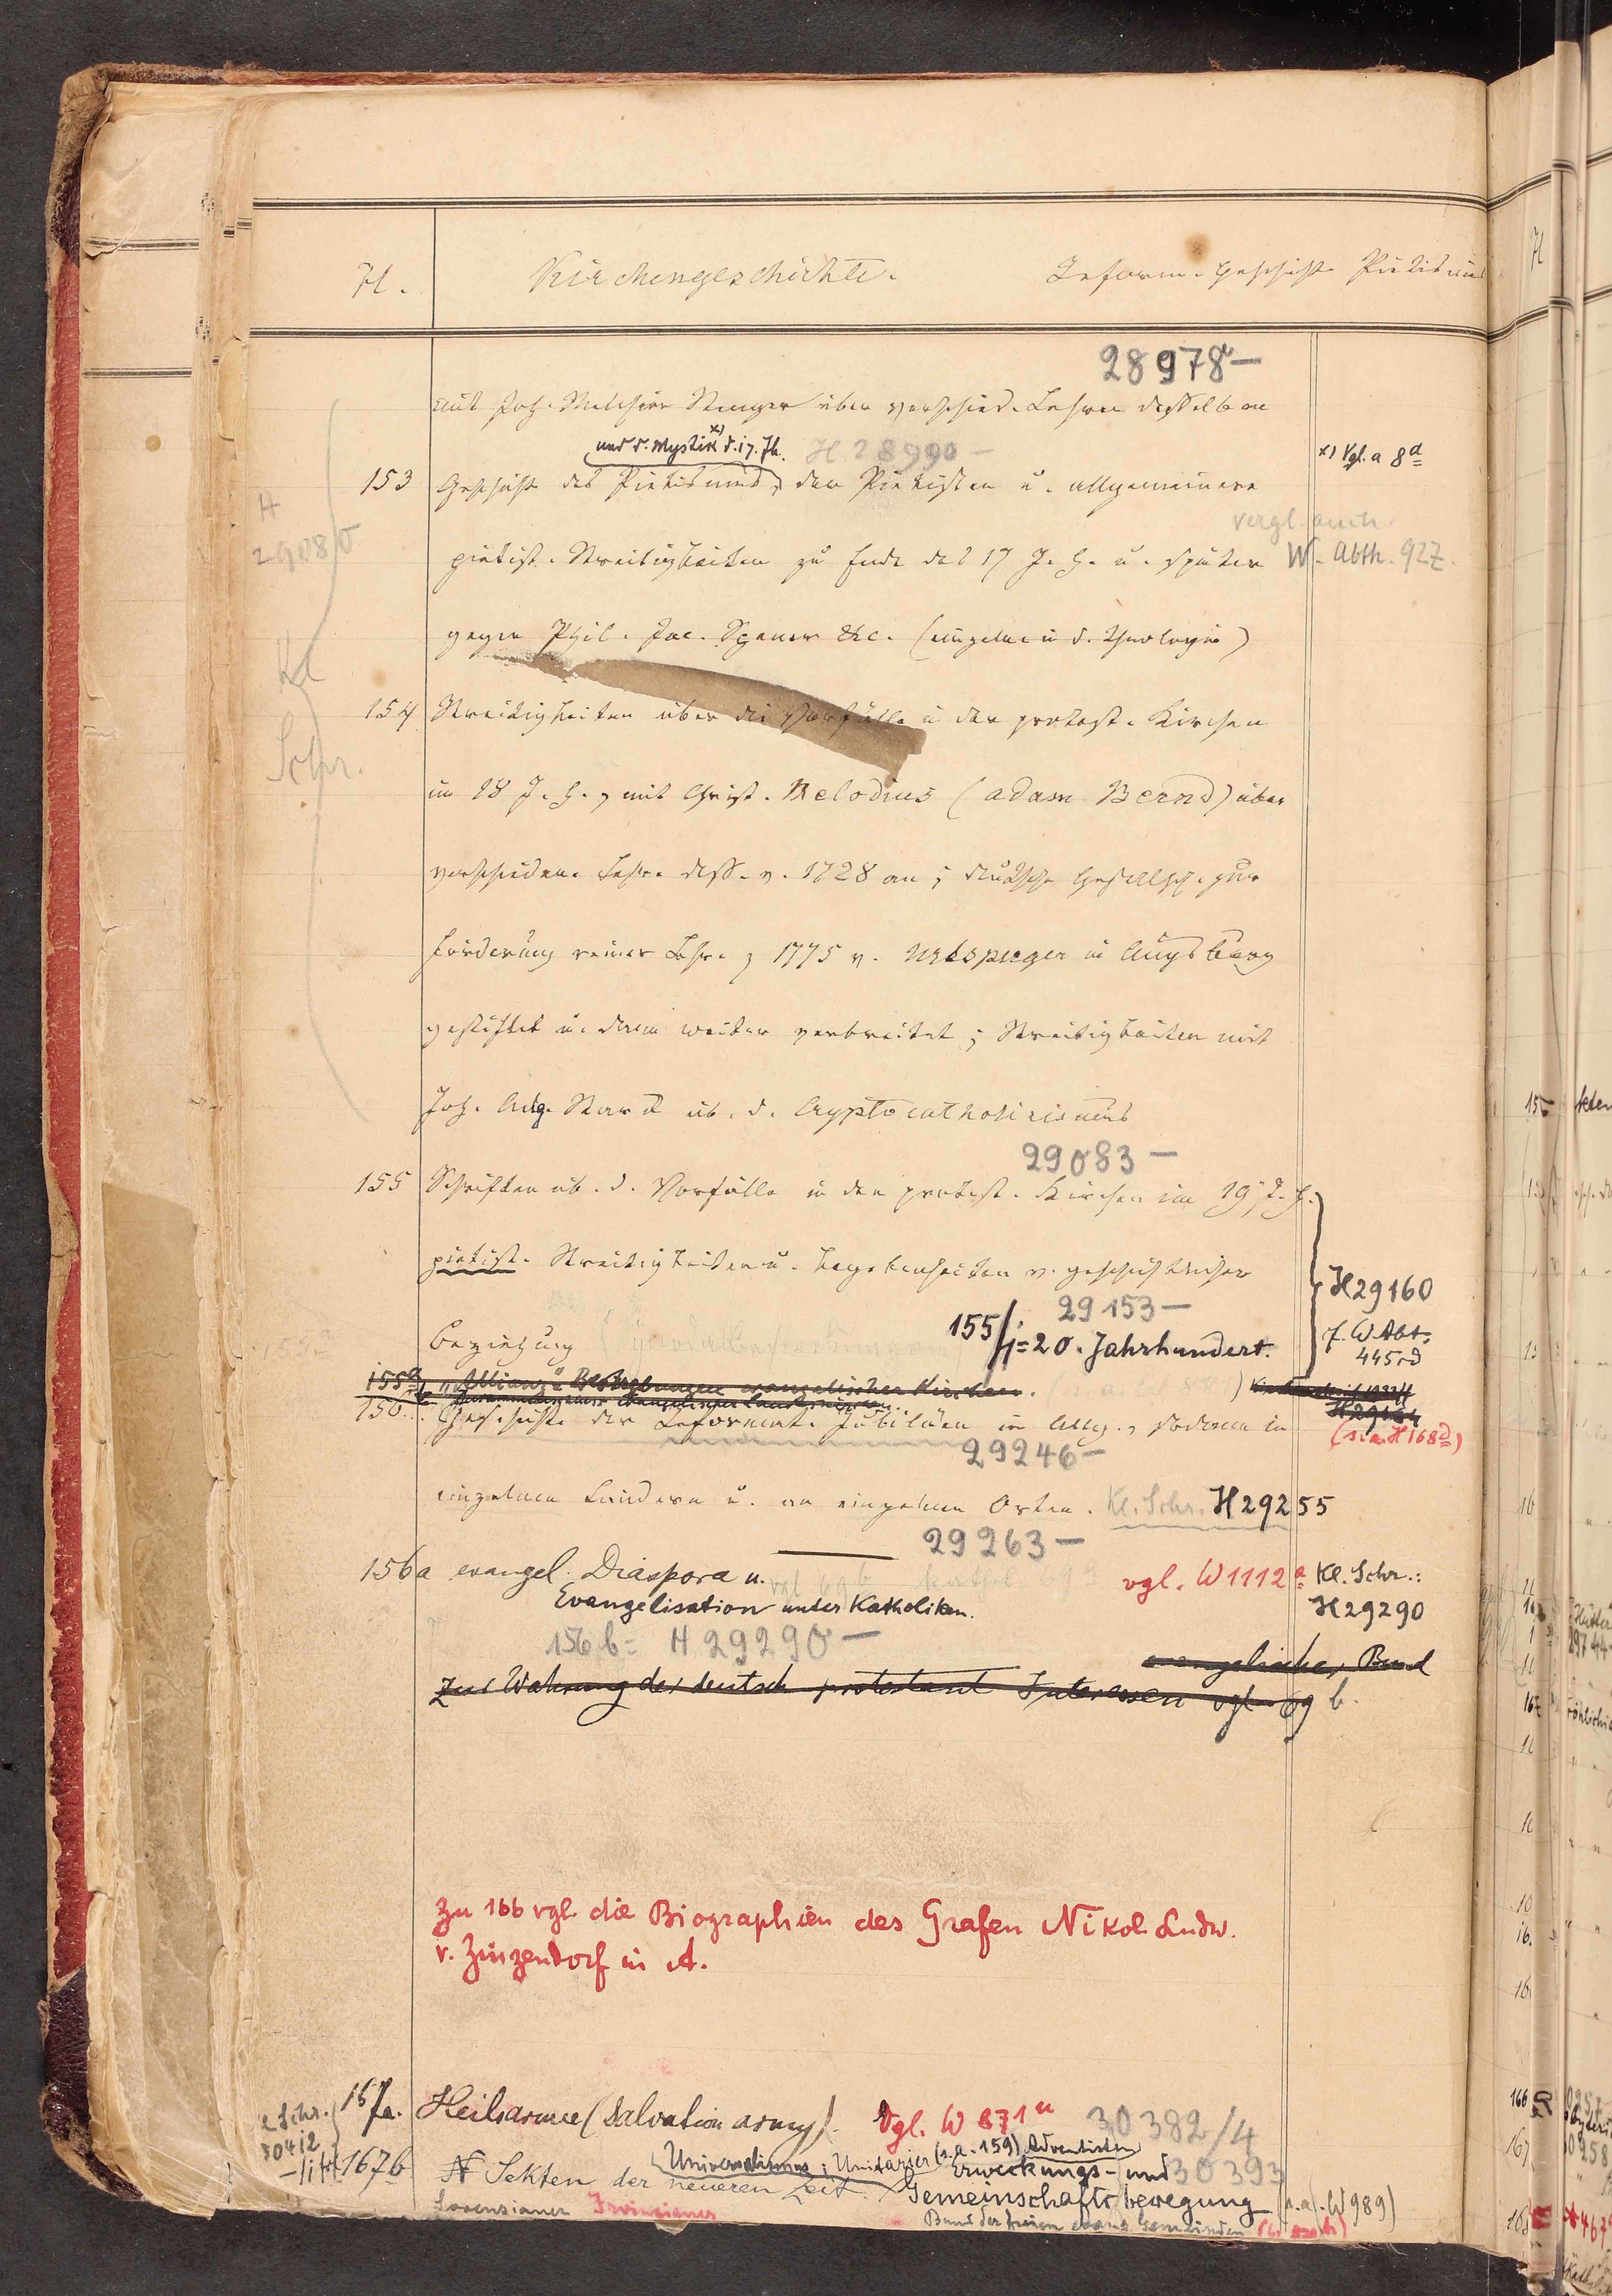 H.
Kirchengeschichte.
Reform. Geschichte Pietismus
28978
mit Joh. Melchior Stenger über verschied. Lehren desselben
und d. Mystik x) d. 17. Jh. H 28990 —
x) Vgl. a 8d
153 Geschichte des Pietismus, der Pietisten u. allgemeinere
H
29080
vergl. auch
pietist. Streitigkeiten zu Ende des 17 J. H. u. später W. Abth. 92Z.
gegen Phil. Jac. Spener &c. (einzelne in d. Theologie)
Kl
Schr.
154 Streitigkeiten über die Vorfälle in der protest. Kirchen
im 18 J. H., mit Christ. Melodius (Adam Bernd) über
verschiedene Lehr. dess. v. 1728 an; deutsche Gesellsch. zur
Förderung reiner Lehre, 1775 v. Urlsperger in Augsburg
gestiftet u. dann weiter verbreitet; Streitigkeiten mit
Joh. Aug. Starck üb. d. Cryptocatholicismus
29083 —
155 Schriften üb. d. Vorfälle in den protest. Kirchen im 19 J. H.
pietist. Streitigkeiten u. Begebenheiten v. geschichtlicher
H29160
29153 —
Beziehung 155/i = 20. Jahrhundert.
f. W Abt.
445rd
155a „Allianz" Bestrebungen evangelischer Kirchen.
H29164
(s. a. H 168d)
156. Geschichte der Reformat. Jubiläen im Allg., sodann in
29246 —
einzelnen Ländern u. an einzelnen Orten. Kl. Schr. H29255
29263 —
156a evangel. Diaspora u.
vgl. W1112a Kl. Schr.:
Evangelisation unter Katholiken.
H29290
156b = H29290 —
evangelischer Bund
Zur Wahrung der deutsch protestant Interessen vgl. 69 b.
Zu 166 vgl. die Biographien des Grafen Nikol. Ludw.
v. Zinzendorf in A.
167a. Heilsarmee (Salvation army). Vgl. W 871u 30382/4
Schr.
30412
Universalismus; Unitarier (s. a. 159) Adventisten
167b N Sekten der neueren Zeit. Erweckungs- und 30393
Gemeinschaftsbewegung (s. a. W989)
Lorensianer Irvingianer Bund der freien evang. Gemeinden